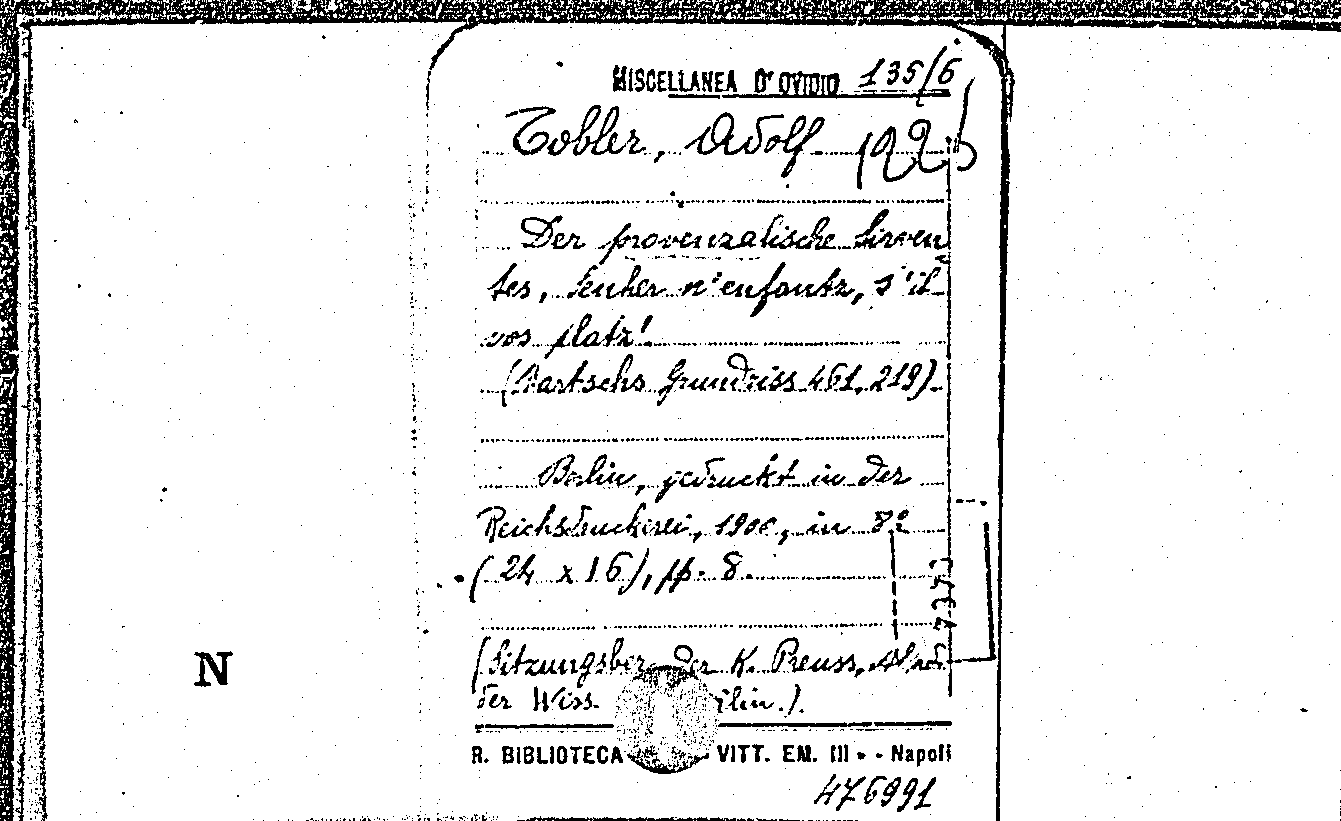 MISCELLANEA D'OVIDIO 135/6
Tobler, Adolf
Der provenzalische Sirven
tes, Senher n'enfantz, s'il
vos platz!
(Bartschs Grundriss 461, 219).
Berlin, gedruckt in der
Reichsdruckerei, 1900, in 8°
(24 x 16), pp. 8.
(Sitzungsber. der K. Preuss. Akad.
der Wiss.
N
R. BIBLIOTECA VITT. EM. III - - Napoli
476991